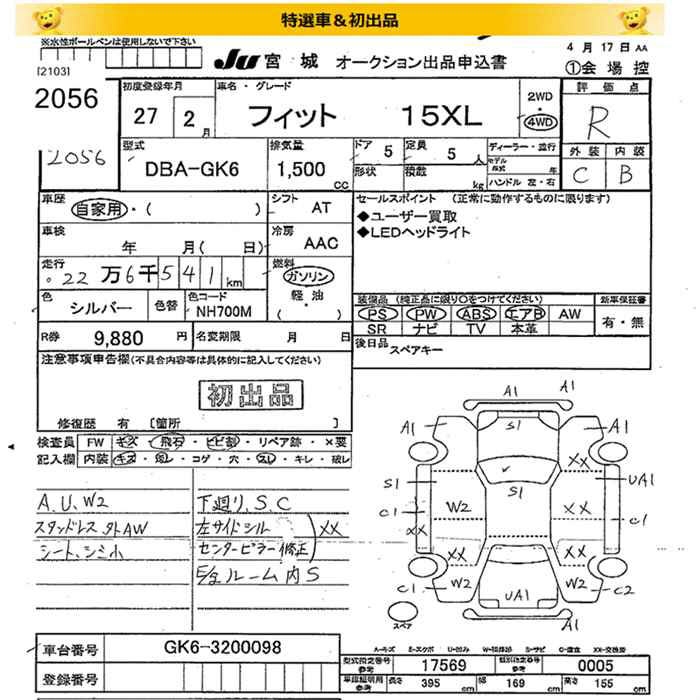 特選車＆初出品
※水性ボールペンは使用しないで下さい
[2103]
JU 宮城 オークション出品申込書
4月17日 AA
①会場控
2056
2056
初度登録年月
27 2月
車名・グレード
フィット 15XL
2WD
・
4WD
評価点
R
型式
DBA-GK6
排気量
1,500 cc
ドア 5
形状
定員 5 人
積載 kg
ディーラー・並行
モデル年式 年
ハンドル 左・右
外装 内装
C B
車歴
自家用・( )
シフト AT
車検
年 月( 日)
冷房 AAC
走行
22万6千541km
燃料
ガソリン
軽・油
( )
色
シルバー
色替
色コード
NH700M
R券 9,880円
名変期限 月 日
セールスポイント (正常に動作するものに限ります)
◆ユーザー買取
◆LEDヘッドライト
装備品 (純正品に限り○をつけてください)
新車保証書
PS PW ABS エアB AW
有・無
SR ナビ TV 本革
後日品 スペアキー
注意事項申告欄(不具合内容等は具体的に記入してください)
初出品
修復歴 有 [箇所 ]
検査員 FW キズ・飛石・ヒビ割・リペア跡・×要
記入欄 内装 キズ・コゲ・穴・キレ・破レ
A.U.W2
スタッドレス 外AW
シート、シミ小
下廻り、S.C
左サイドシル
センターピラー修正
XX
E/全ルーム内S
A1
A1
A1
S1
A1
S1
XX
UA1
S1
W2
XX
C1
C1
XX
XX
XX
W2
W2
C1
UA1
C2
A1
スペア
A-キズ E-エクボ U-凹ミ W-補修跡 S-サビ C-腐食 XX-交換済
車台番号 GK6-3200098
登録番号
型式指定番号 参考 17569
類別指定番号 参考 0005
車庫証明用 参考 長さ 395 cm 幅 169 cm 高さ 155 cm